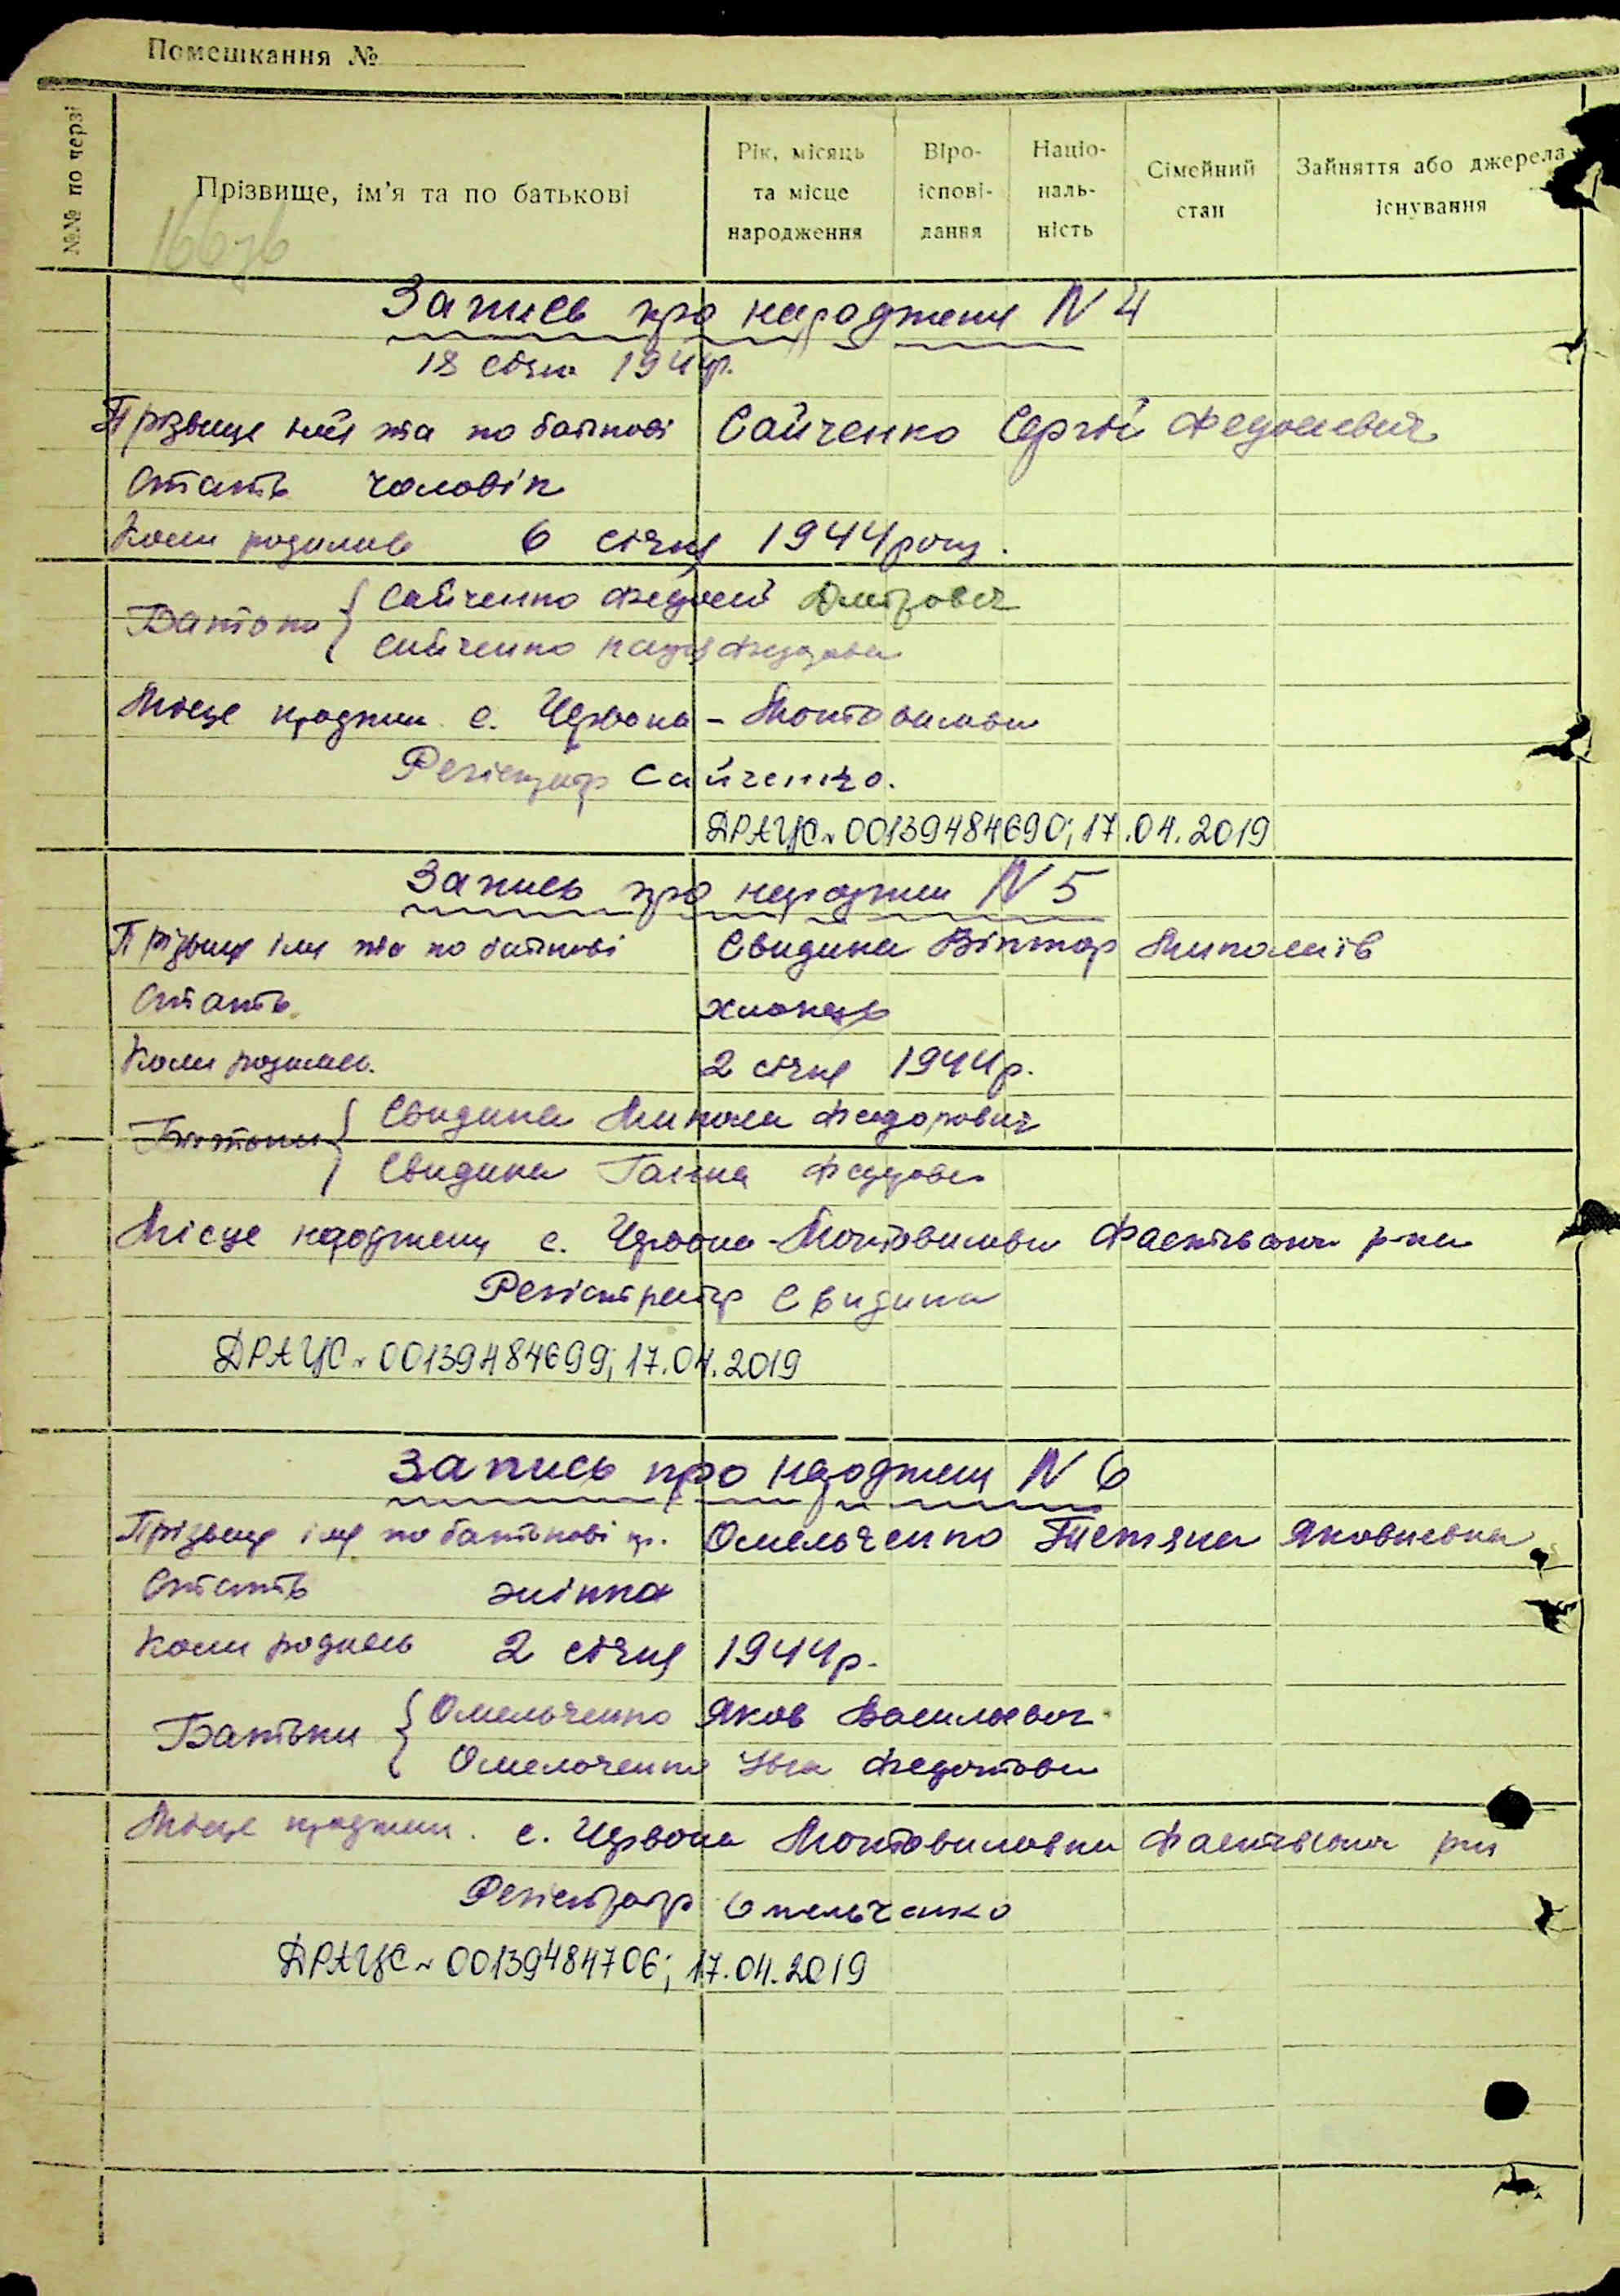 Помешкання №
№№ по черзі
Прізвище, ім'я та по батькові
Рік, місяць та місце народження
Віро-іспові-дання
Націо-наль-ність
Сімейний стан
Зайняття або джерела існування
Запись про народженя N 4
18 січня 1944р.
Прізвище імя та по батькові Сайченко Сергій Федосієвич
Стать чоловік
Коли родилась 6 січня 1944 року.
Батьки Сайченко Федосій Дмитрович
Сайченко Надія Федоровна
Місце народжен. с. Червона-Мотовиловка
Регістратор Сайченко.
ДРАЦС~00139484690; 17.04.2019
Запись про народжен N 5
Прізвище імя та по батькові Свидина Віктор Миколаїв
Стать хлопець
Коли родилась. 2 січня 1944р.
Батьки Свидина Микола Федорович
Свидина Ганна Федоровна
Місце народженя с. Червона-Мотовиловка Фастівського р-на
Регістратор Свидина
ДРАЦС~00139484699; 17.04.2019
Запись про народженя N 6
Прізвище імя по батькові Омельченко Тетяна Яковлевна
Стать жінка
Коли родилась 2 січня 1944р.
Батьки Омельченко Яков Васильевич
Омельченко Федотовна
Місце народжен. с. Червона Мотовиловка Фастівського р-на
Регістратор Омельченко
ДРАЦС~00139484706; 17.04.2019